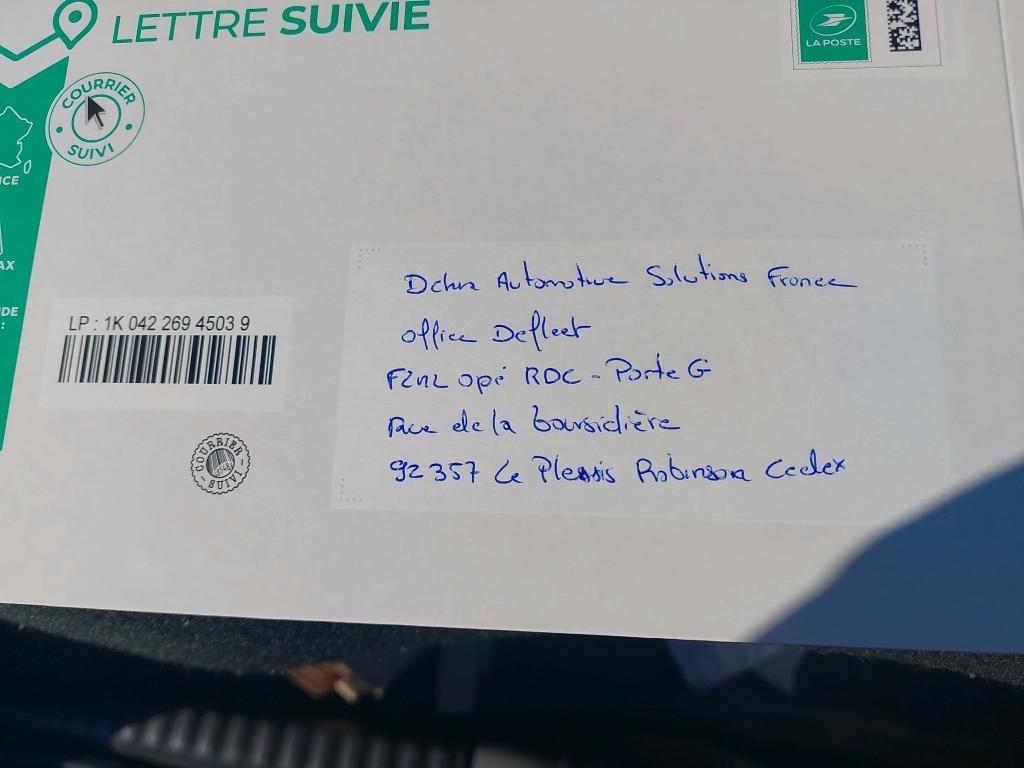 LETTRE SUIVIE
LA POSTE
COURRIER
SUIVI
LP : 1K 042 269 4503 9
COURRIER
SUIVI
Automotive Solutions France
Office Defleet
RDC - Porte G
de la boursidière
92357 Le Plessis Robinson Cedex